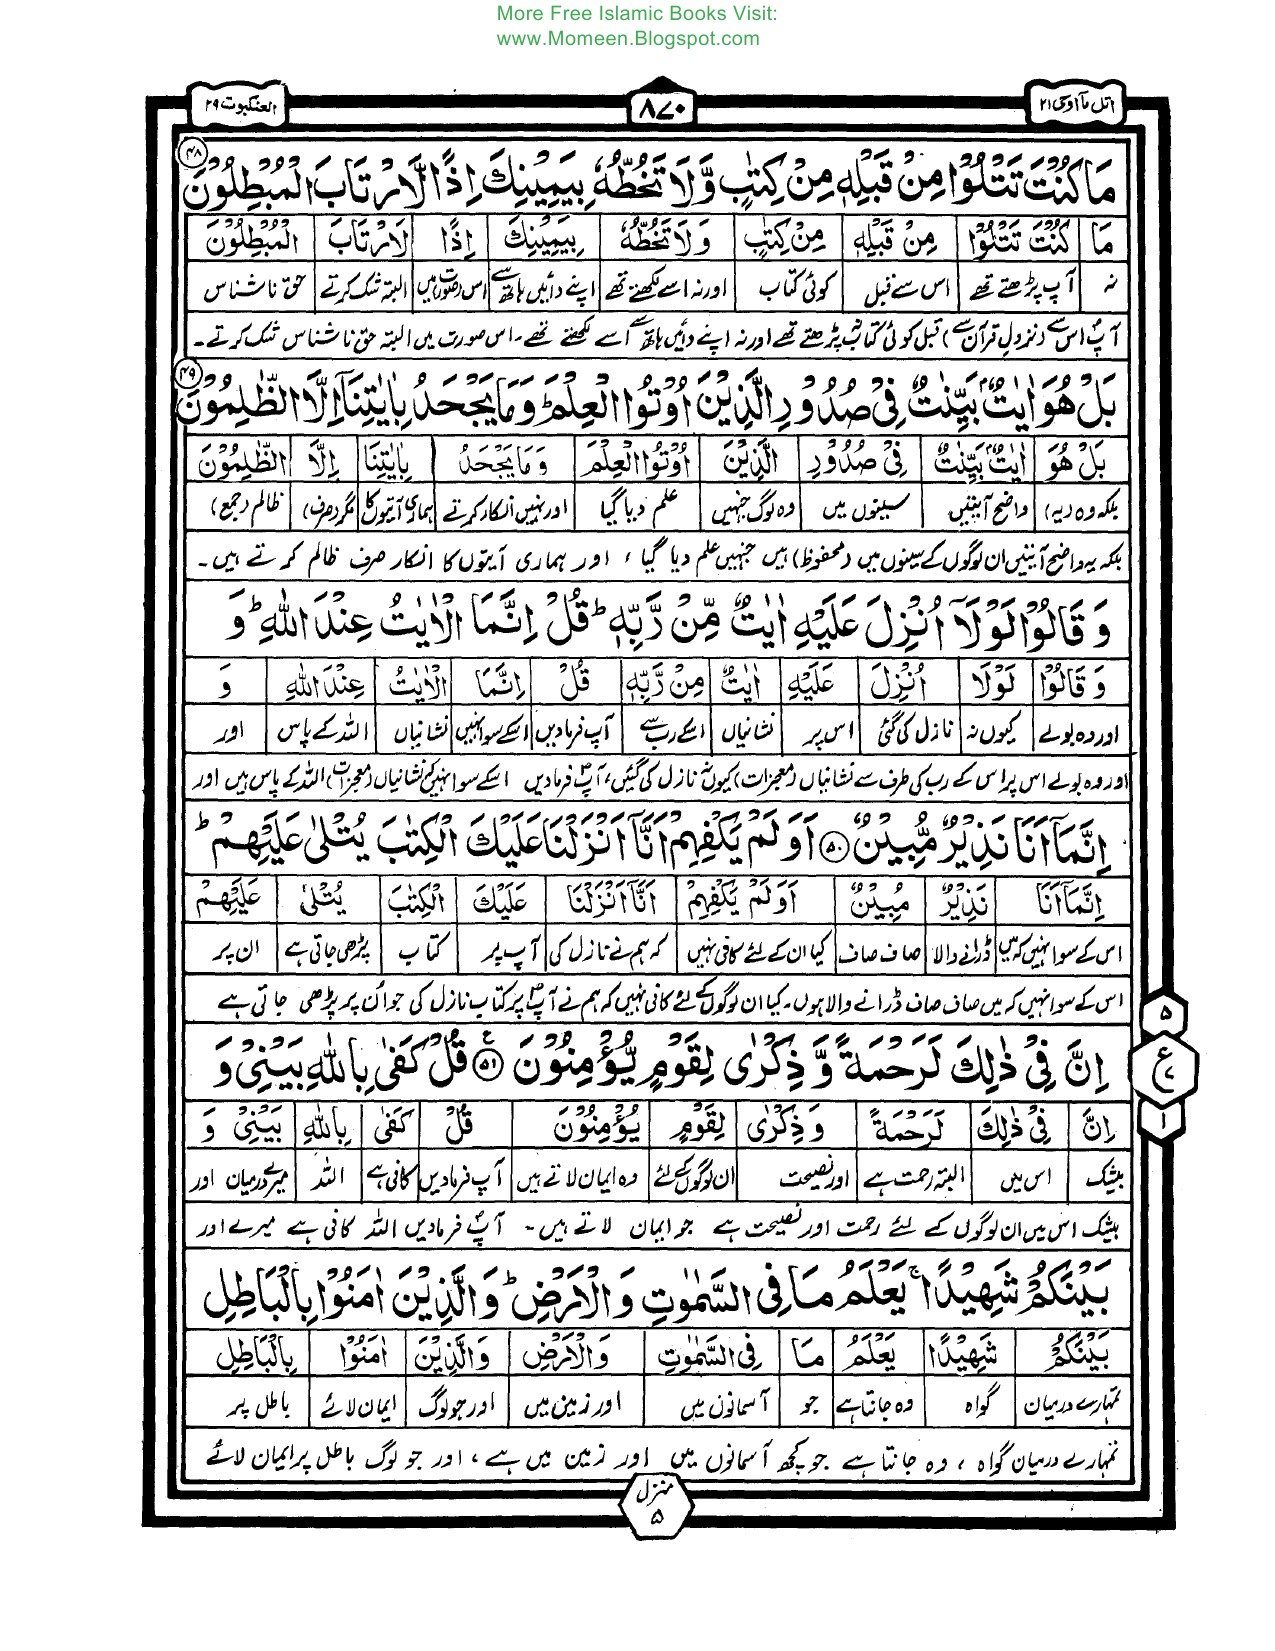 More Free Islamic Books Visit:
www.Momeen.Blogspot.com
اتل مآ اوحی ۲۱ ۸۷۰ العنکبوت ۲۹
مَا كُنْتَ تَتْلُوْا مِنْ قَبْلِهٖ مِنْ كِتٰبٍ وَّلَا تَخُطُّهٗ بِيَمِيْنِكَ اِذًا لَّارْتَابَ الْمُبْطِلُوْنَ ۴۸
مَا كُنْتَ تَتْلُوْا مِنْ قَبْلِهٖ مِنْ كِتٰبٍ وَلَا تَخُطُّهٗ بِيَمِيْنِكَ اِذًا لَارْتَابَ الْمُبْطِلُوْنَ
نہ آپ پڑھتے تھے اس سے قبل کوئی کتاب اور نہ اسے لکھتے تھے اپنے دائیں ہاتھ سے اس (صورت) میں البتہ شک کرتے حق ناشناس
آپ اس سے (نزولِ قرآن سے) قبل کوئی کتاب نہ پڑھتے تھے اور نہ اپنے دائیں ہاتھ سے اسے لکھتے تھے۔ اس صورت میں البتہ حق ناشناس شک کرتے۔
بَلْ هُوَ اٰيٰتٌۢ بَيِّنٰتٌ فِيْ صُدُوْرِ الَّذِيْنَ اُوْتُوا الْعِلْمَ ؕ وَمَا يَجْحَدُ بِاٰيٰتِنَاۤ اِلَّا الظّٰلِمُوْنَ ۴۹
بَلْ هُوَ اٰيٰتٌۢ بَيِّنٰتٌ فِيْ صُدُوْرِ الَّذِيْنَ اُوْتُوا الْعِلْمَ وَمَا يَجْحَدُ بِاٰيٰتِنَا اِلَّا الظّٰلِمُوْنَ
بلکہ وہ (یہ) واضح آیتیں سینوں میں وہ لوگ جنہیں علم دیا گیا اور نہیں انکار کرتے ہماری آیتوں کا مگر (صرف) ظالم (جمع)
بلکہ یہ واضح آیتیں ان لوگوں کے سینوں میں (محفوظ) ہیں جنہیں علم دیا گیا، اور ہماری آیتوں کا انکار صرف ظالم کرتے ہیں۔
وَ قَالُوْا لَوْلَاۤ اُنْزِلَ عَلَيْهِ اٰيٰتٌ مِّنْ رَّبِّهٖ ؕ قُلْ اِنَّمَا الْاٰيٰتُ عِنْدَ اللّٰهِ ؕ وَ
وَ قَالُوْا لَوْلَا اُنْزِلَ عَلَيْهِ اٰيٰتٌ مِنْ رَّبِّهٖ قُلْ اِنَّمَا الْاٰيٰتُ عِنْدَ اللّٰهِ وَ
اور وہ بولے کیوں نہ نازل کی گئی اس پر نشانیاں اسکے رب سے آپ فرمادیں اسکے سوا نہیں نشانیاں اللہ کے پاس اور
اور وہ بولے اس پر اس کے رب کی طرف سے نشانیاں (معجزات) کیوں نہ نازل کی گئیں، آپ فرمادیں اسکے سوا نہیں کہ نشانیاں (معجزات) اللہ کے پاس ہیں اور
اِنَّمَاۤ اَنَا نَذِيْرٌ مُّبِيْنٌ ۵۰ اَوَلَمْ يَكْفِهِمْ اَنَّاۤ اَنْزَلْنَا عَلَيْكَ الْكِتٰبَ يُتْلٰى عَلَيْهِمْ ؕ
اِنَّمَاۤ اَنَا نَذِيْرٌ مُبِيْنٌ اَوَلَمْ يَكْفِهِمْ اَنَّاۤ اَنْزَلْنَا عَلَيْكَ الْكِتٰبَ يُتْلٰى عَلَيْهِمْ
اس کے سوا نہیں کہ میں ڈرانے والا صاف صاف کیا ان کے لئے کافی نہیں کہ ہم نے نازل کی آپ پر کتاب پڑھی جاتی ہے ان پر
اس کے سوا نہیں کہ میں صاف صاف ڈرانے والا ہوں۔ کیا ان لوگوں کے لئے کافی نہیں کہ ہم نے آپ پر کتاب نازل کی جو ان پر پڑھی جاتی ہے
اِنَّ فِيْ ذٰلِكَ لَرَحْمَةً وَّ ذِكْرٰى لِقَوْمٍ يُّؤْمِنُوْنَ ۵۱ ع قُلْ كَفٰى بِاللّٰهِ بَيْنِيْ وَ
اِنَّ فِيْ ذٰلِكَ لَرَحْمَةً وَ ذِكْرٰى لِقَوْمٍ يُؤْمِنُوْنَ قُلْ كَفٰى بِاللّٰهِ بَيْنِيْ وَ
بیشک اس میں البتہ رحمت ہے اور نصیحت ان لوگوں کے لئے وہ ایمان لاتے ہیں آپ فرمادیں کافی ہے اللہ میرے درمیان اور
بیشک اس میں ان لوگوں کے لئے رحمت اور نصیحت ہے جو ایمان لاتے ہیں۔ آپ فرمادیں اللہ کافی ہے میرے اور
بَيْنَكُمْ شَهِيْدًا ۚ يَعْلَمُ مَا فِي السَّمٰوٰتِ وَ الْاَرْضِ ؕ وَ الَّذِيْنَ اٰمَنُوْا بِالْبَاطِلِ
بَيْنَكُمْ شَهِيْدًا يَعْلَمُ مَا فِي السَّمٰوٰتِ وَالْاَرْضِ وَالَّذِيْنَ اٰمَنُوْا بِالْبَاطِلِ
تمہارے درمیان گواہ وہ جانتا ہے جو آسمانوں میں اور زمین میں اور جو لوگ ایمان لائے باطل پر
تمہارے درمیان گواہ، وہ جانتا ہے جو کچھ آسمانوں میں اور زمین میں ہے، اور جو لوگ باطل پر ایمان لائے
۵
ع
۷
۱
منزل
۵